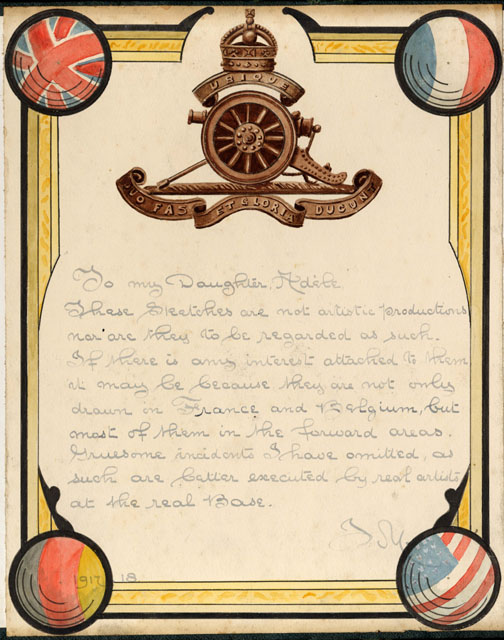 UBIQUE
QUO FAS ET GLORIA DUCUNT
To my Daughter, Adèle.
These Sketches are not artistic productions
nor are they to be regarded as such.
If there is any interest attached to them
it may be because they are not only
drawn in France and Belgium, but
most of them in the forward areas.
Gruesome incidents I have omitted, as
such are better executed by real artists
at the real Base.
1917 18